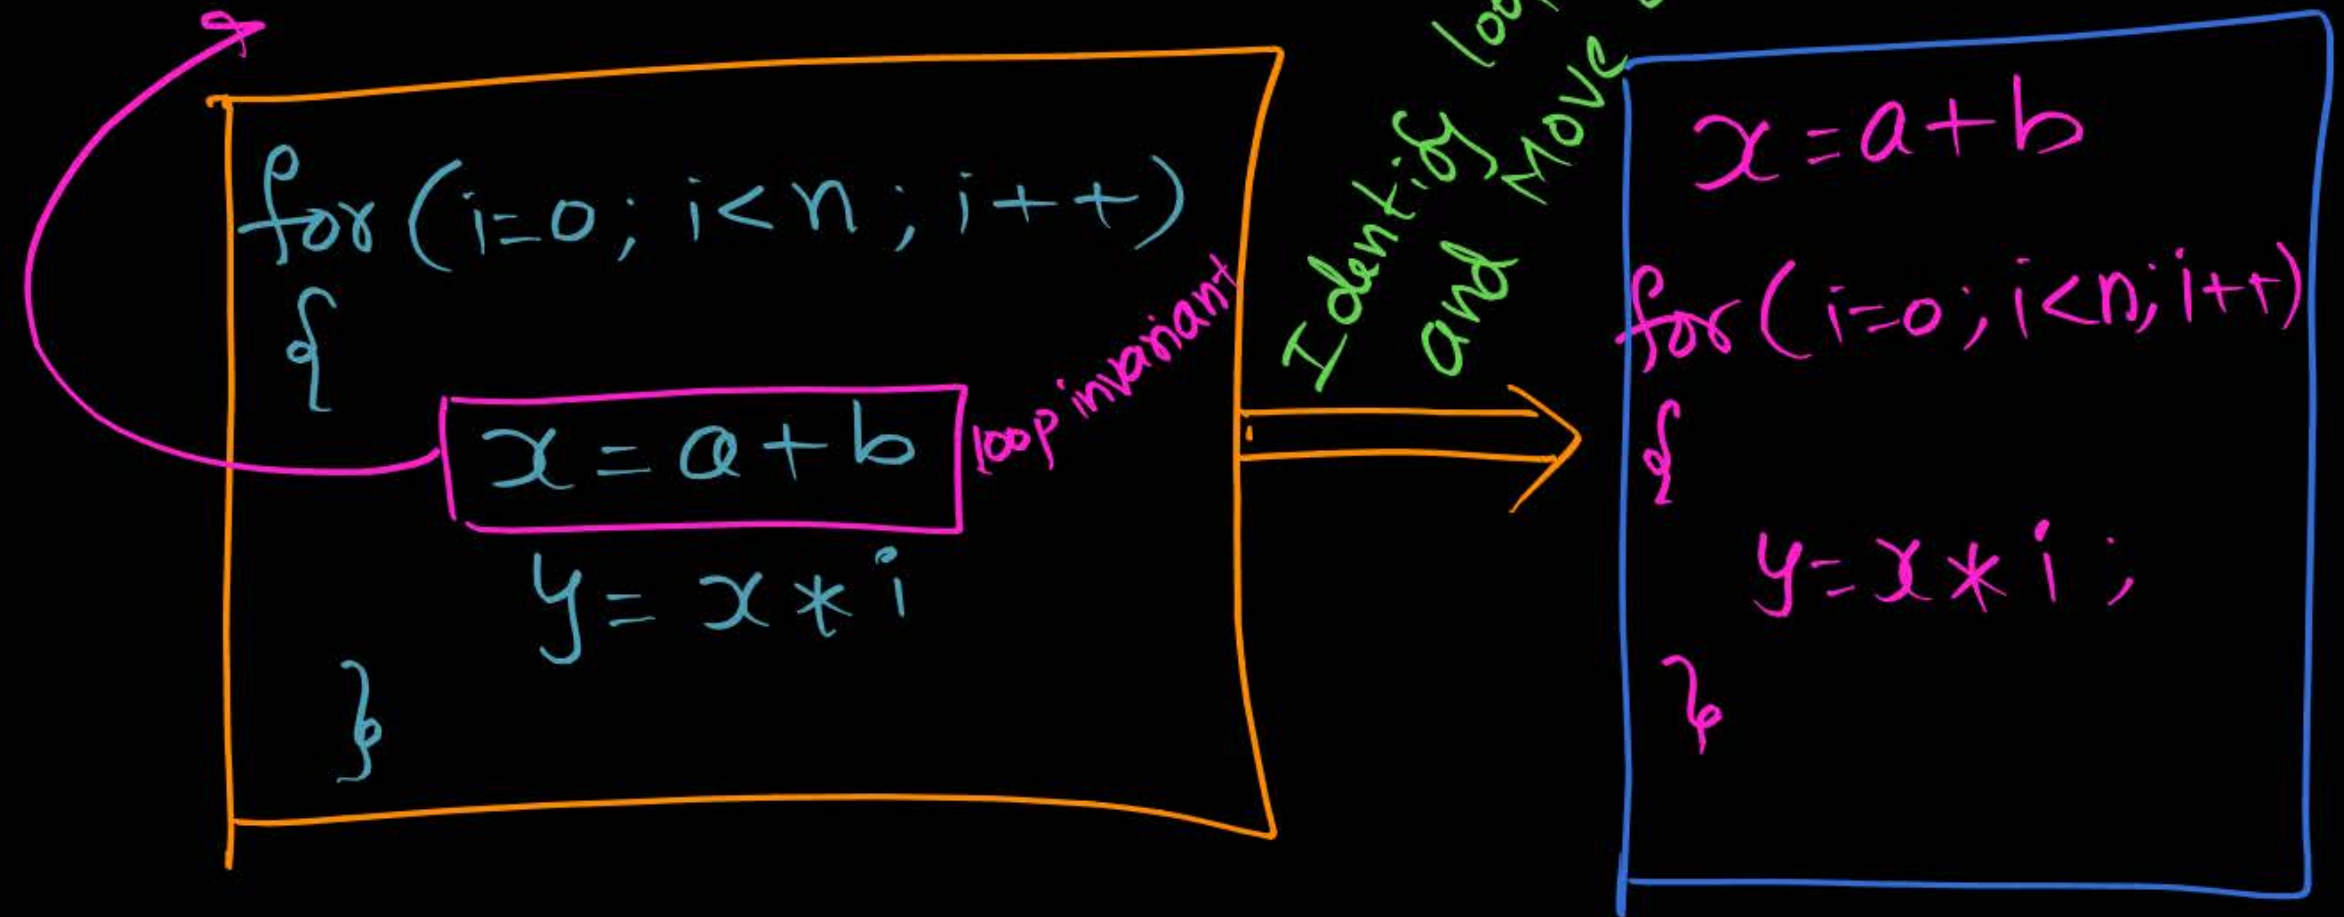 for (i=0; i<n; i++)
{
x = a + b
loop invariant
y = x * i
}
Identify
and Move
x = a + b
for (i=0; i<n; i++)
{
y = x * i ;
}